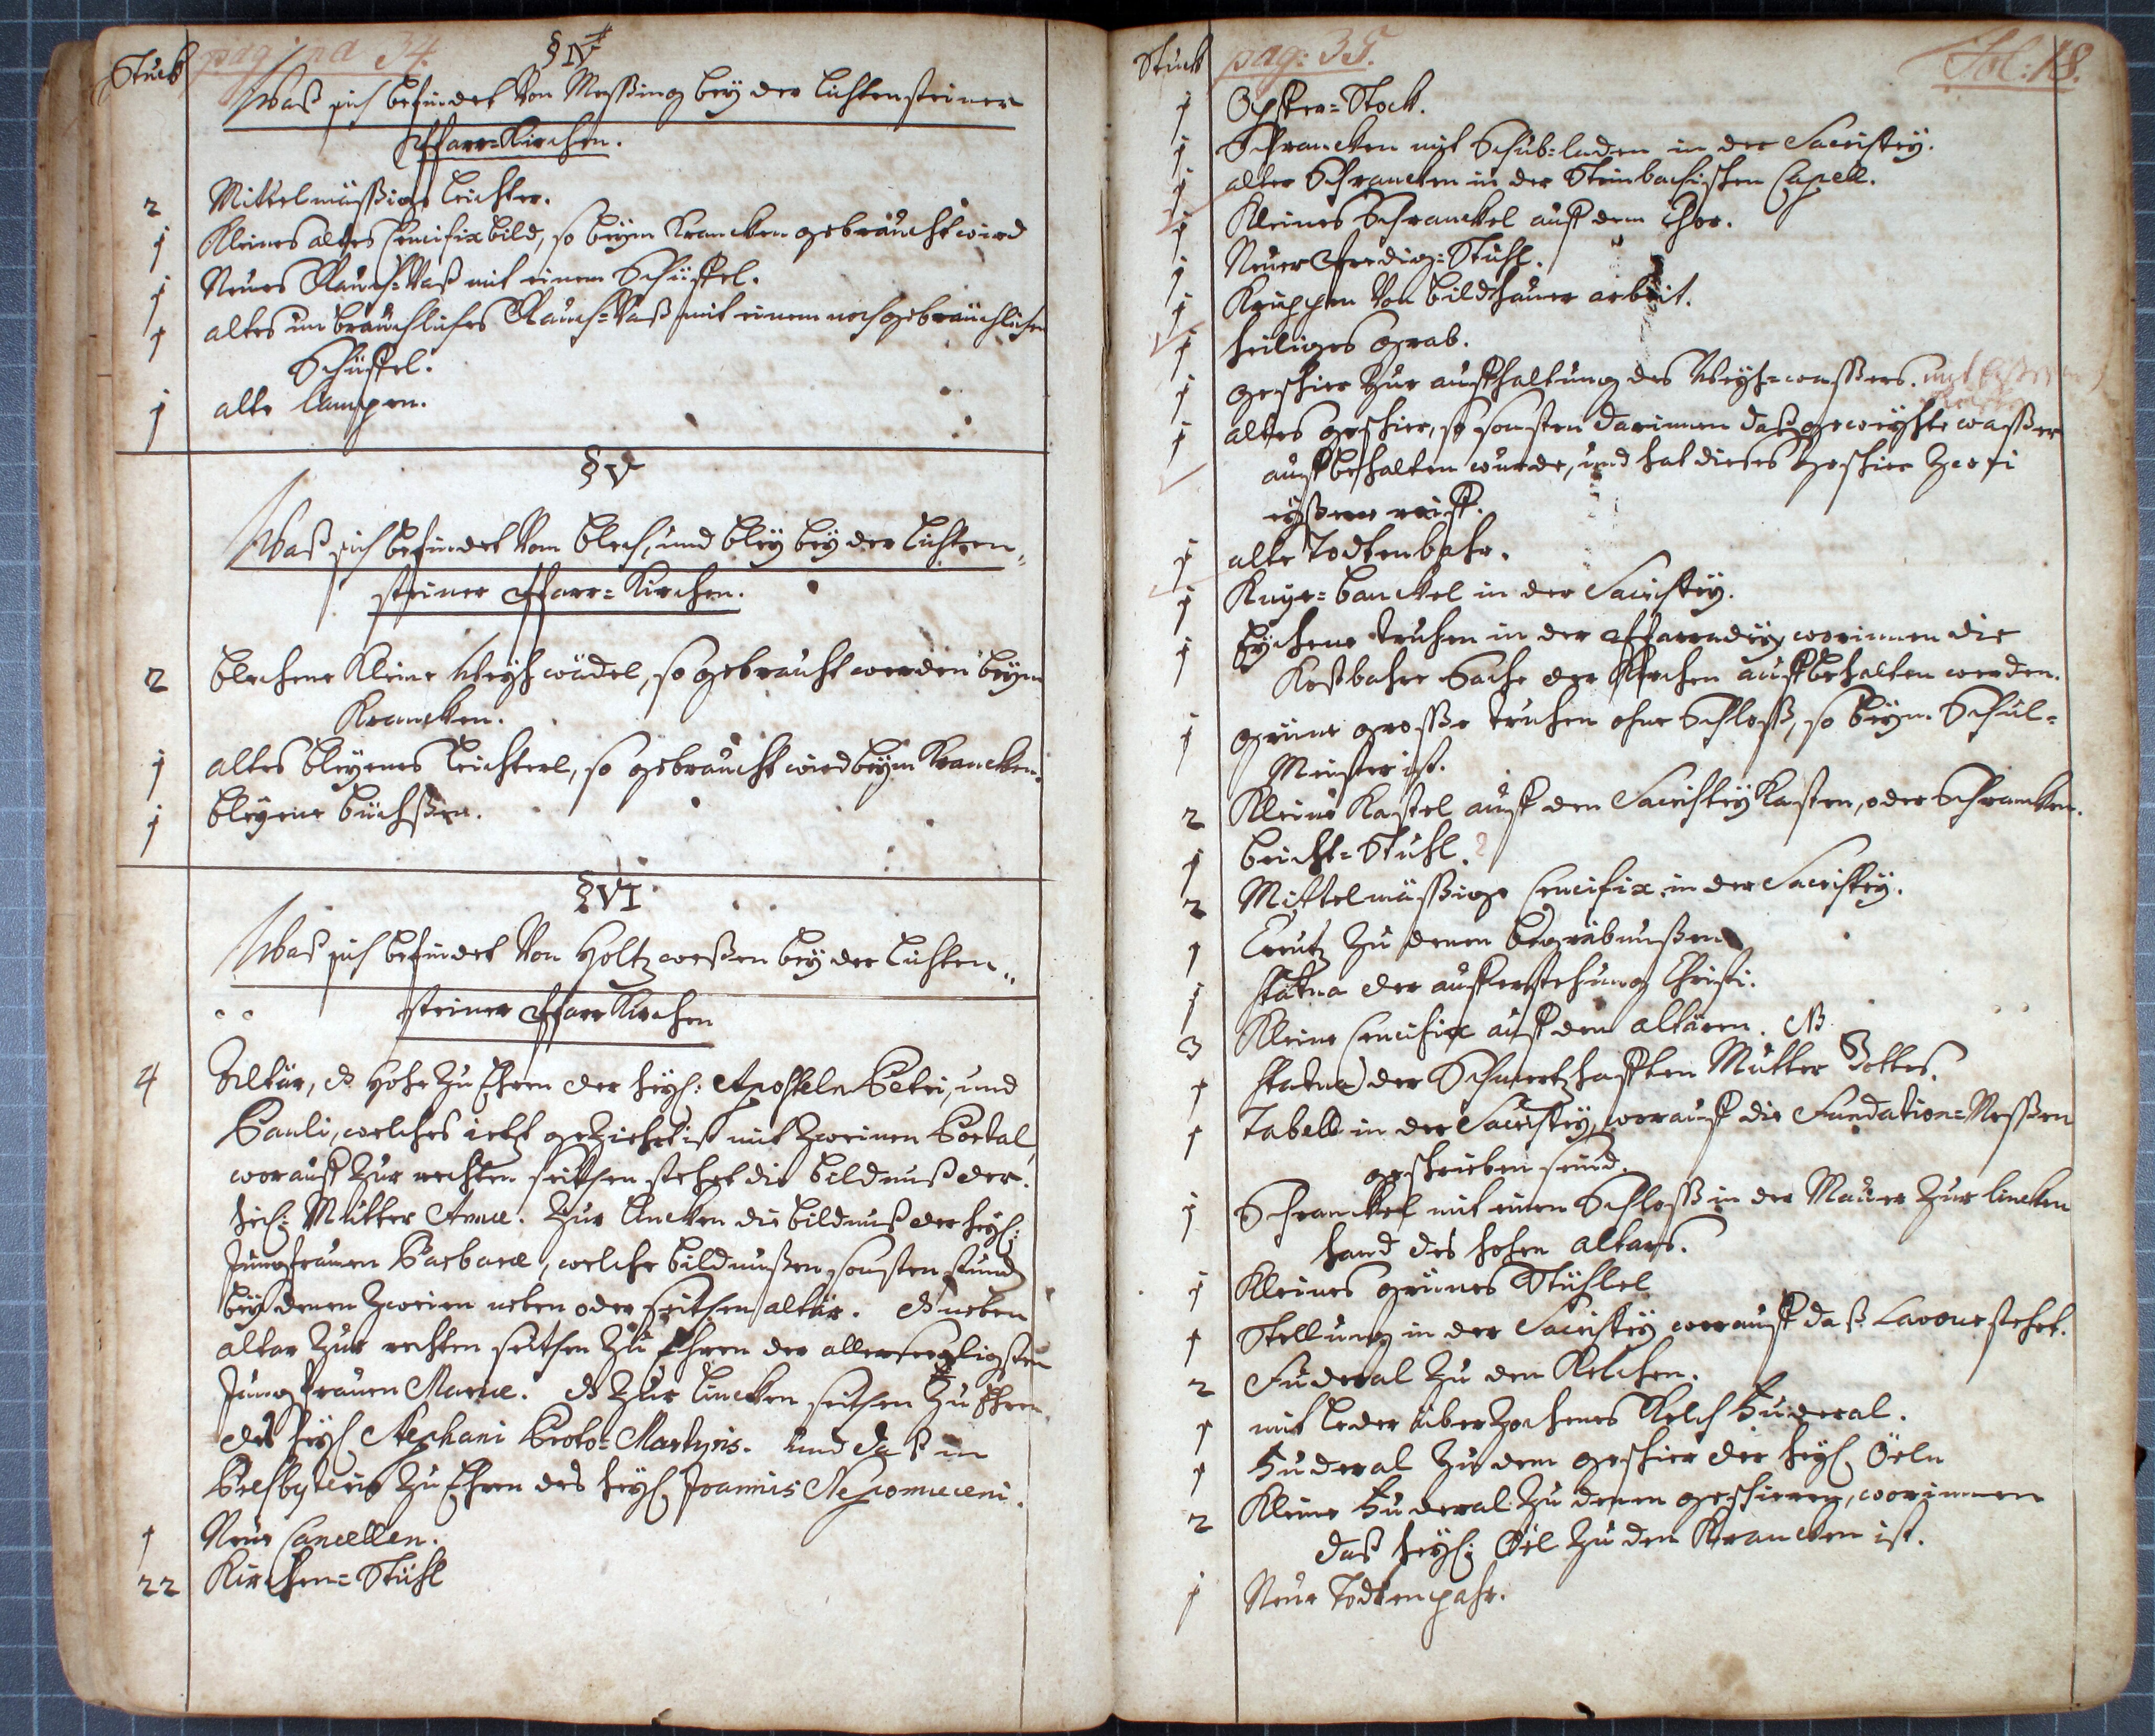 Stuck
pagina 34.
§ IV
Waß sich befindet Von Messing bey der Lichtensteiner
Pfarr=Kirchen.
2 Mittelmässige Leichter.
1 Kleines altes Crucifix bild, so beym Krancken gebraucht wird
1 Neues Rauch=Vaß mit einem Schüffel.
1 altes unbrauchliches Rauch=Vaß mit einem noch gebräuchlichen
Schüffel.
1 alte Lampen.
§ V
Waß sich befindet Von Blech, und bley bey der Lichten„
steiner Pfarr=Kirchen.
2 blechene Kleine Weyhwädel, so gebraucht werden beym
Krancken.
1 altes bleyenes Leichterl, so gebraucht wird beym Krancken.
1 bleyene büchßen.
§ VI
Waß sich befindet Von Holtzweßen bey der Lichten„
steiner Pfarr Kirchen
4 Altär, d. Hohe zu Ehren der heyl: Aposteln Petri, und
Pauli, welches jetzt geziehrt ist mit zweinen Portal,
worauff zur rechten seithen stehet die bildnuß der
heyl: Mutter Annæ. Zur Lincken die bildnuß der heyl:
Jungfrauen Barbaræ, welche bildnußen sonsten stund
bey denen zweien neben oder seithen altär. d. neben
altar zur rechten seithen zu Ehren der allerseeligsten
Jungfrauen Mariæ. d. zur Lincken seithen zu Ehren
des heyl. Stephani Proto=Martyris. Und daß in
Presbyterio zu Ehren des heyl. Joannis Nepomuceni.
1 Neue Cancellen.
22 Kirchen=Stühl
Stuck
pag: 35.
Fol: 18.
1 Opffer=Stock.
1 Schrancken mit Schub=laden in der Sacristey.
1 alter Schrancken in der Steinbachischen Capell.
1 Kleines Schranckel auff dem Chor.
1 Neuer Predig=Stuhl.
1 Krippen Von bildhauer arbeit.
1 heiliges Grab.
1 geschier zur auffhaltung des Weyh=wassers.
1 altes geschier, so sonsten darinnen daß geweyhte wasser
auffbehalten wurde, und hat dieses Geschier zwei
eyßerne reiff.
1 alte Todtenbahr.
1 Knye=banckel in der Sacristey.
1 Eychene truhen in der Pfarradey worinnen die
Kostbahre Sache der Kirchen auffbehalten werden.
1 grüne grosse truhen ohne Schloß, so beym Schul=
Meister ist.
2 Kleine Kastel auff den Sacristey Kasten, oder Schrancken.
1 beicht=Stuhl.
2 Mittelmässige Crucifix in der Sacristey.
1 Creutz zu denen begräbnußen
1 statua der aufferstehung Christi.
3 Kleine Crucifix auff den altären. NB
1 statua der Schmertzhafften Mutter Gottes.
1 Tabell in der Sacristey, worauff die Fundation=Messen
geschrieben seind.
1 Schranckel mit einen Schloß in der Mauer zur lincken
hand des hohen altars.
1 Kleines grünes Stühlel
1 Stellung in der Sacristey worauff daß Lavour stehet.
2 Fuderal zu den Kelchen.
1 mit leder überzochenes Kelch Fuderal.
1 Fuderal zu dem geschier der heyl. Öeln
2 Kleine Fuderal zu denen geschieren, worinnen
daß heyl: Öel zu den Krancken ist.
1 Neue Todtenpahr.